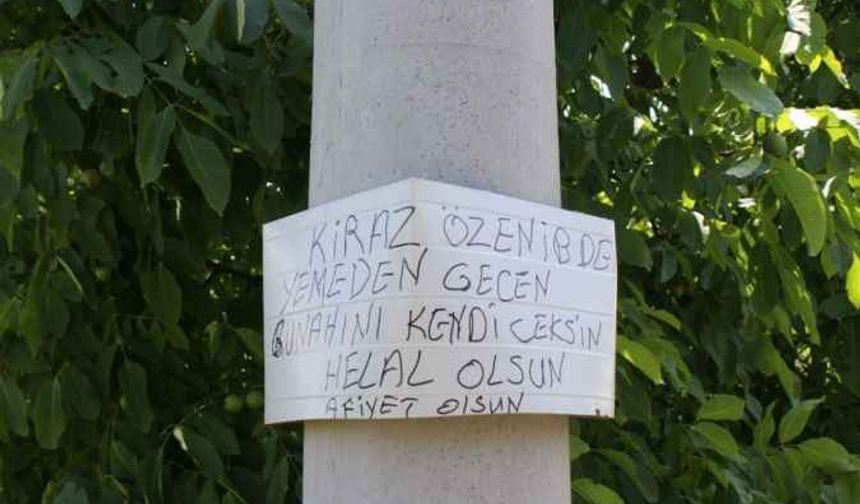 KİRAZ ÖZENİBDE
YEMEDEN GEÇEN
GUNAHINI KENDİ CEKS'IN
HELAL OLSUN
AFİYET OlSUN